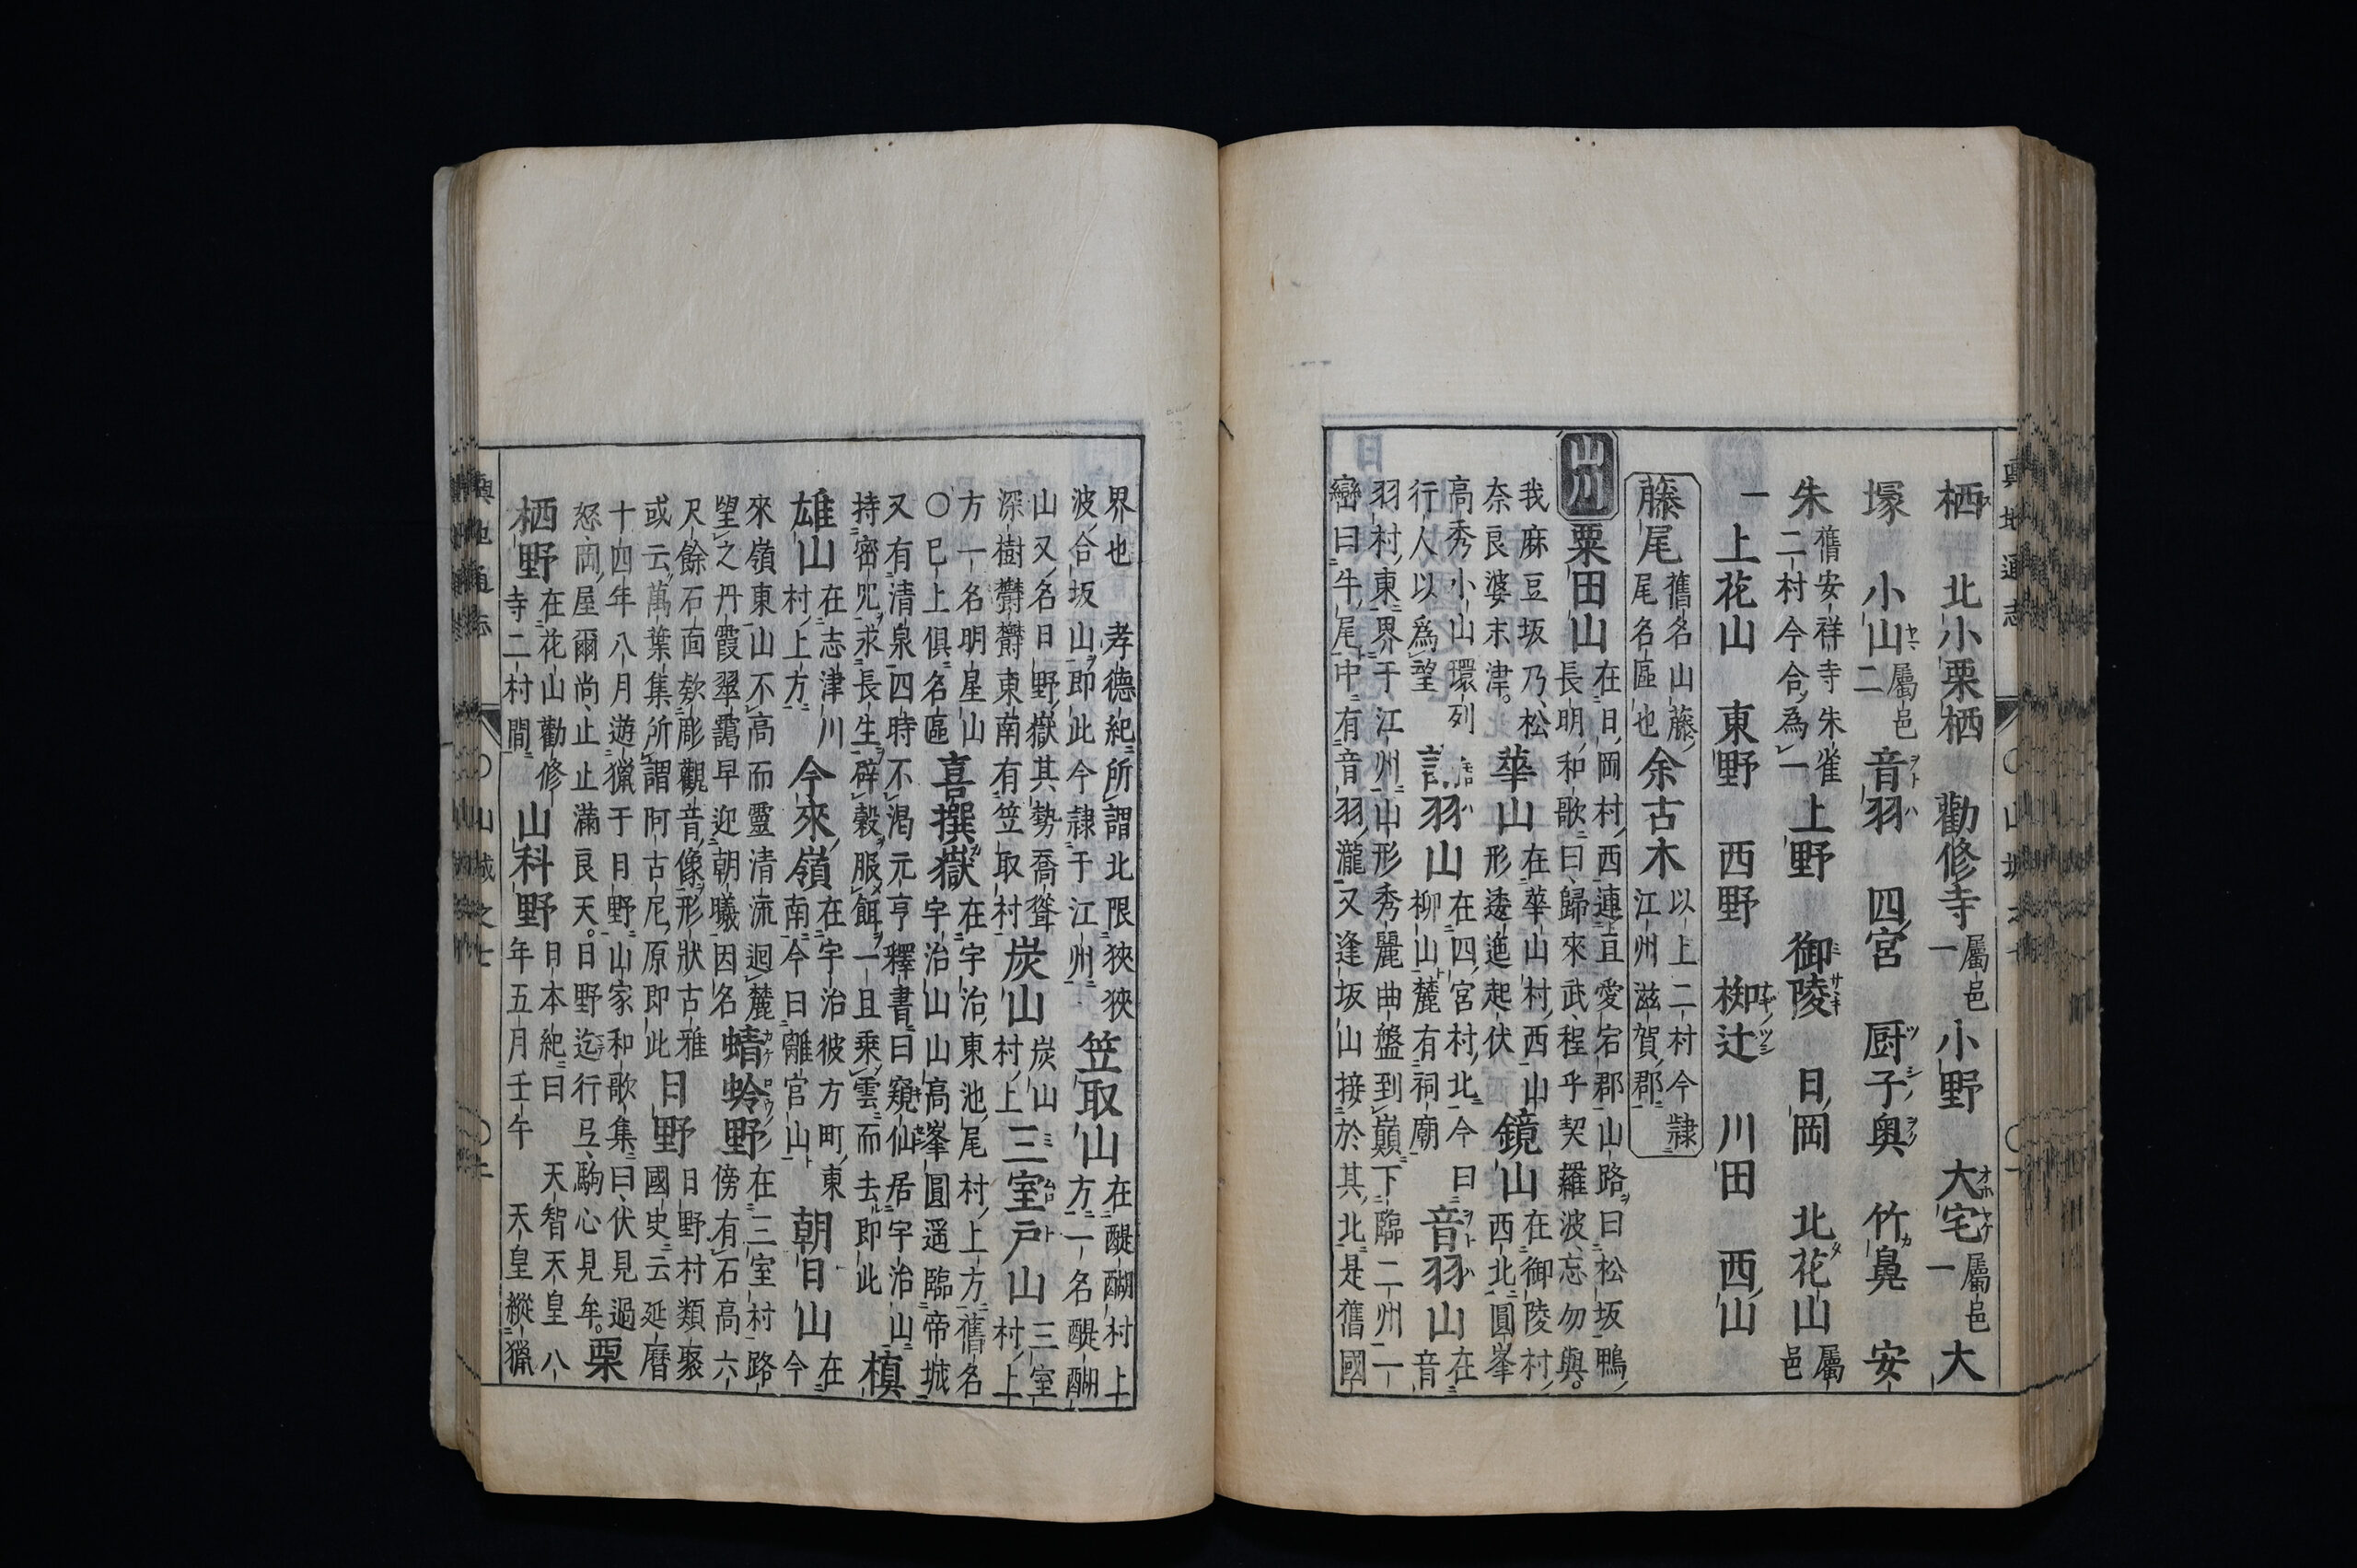 栖 北小栗栖 勸修寺 屬邑一 小野 大宅 屬邑一 大
塚 小山 屬邑二 音羽 四宮 厨子奥 竹鼻 安
朱 舊安祥寺朱雀二村今合為一 上野 御陵 日岡 北花山 屬邑
一 上花山 東野 西野 椥辻 川田 西山
藤尾 舊名山藤尾名區也 余古木 以上二村今隷江州滋賀郡
山川 粟田山 在日岡村西連亘愛宕郡山路曰松坂鴨長明和歌曰歸來武程乎契羅波忘勿與。
我麻豆坂乃松奈良婆末津。 華山 在華山村西山形逶迤起伏 鏡山 在御陵村西北圓峯
高秀小山環列行人以爲望 羽山 在四宮村北今曰柳山麓有祠廟 音羽山 在音
羽村東界于江州山形秀麗曲盤到巓下臨二州一
巒曰牛尾中有音羽瀧又逢坂山接於其北是舊國
界也 孝德紀所謂北限狹狹
波合坂山即此今隷于江州 笠取山 在醍醐村上方一名醍醐
山又名曰野嶽其勢喬聳
深樹欝欝東南有笠取村 炭山 炭山村上 三室戸山 三室村上
方一名明星山
○已上俱名區 喜撰嶽 在宇治東池尾村上方舊名宇治山山高峯圓遥臨帝城
又有清泉四時不渇元亨釋書曰窺仙居宇治山
持密咒求長生辟穀服餌一旦乘雲而去即此 槙
雄山 在志津川村上方 今來嶺 在宇治彼方町東南今曰離宮山 朝日山 在今
來嶺東山不高而靈清流迴麓
望之丹霞翠靄早迎朝曦因名 蜻蛉野 在三室村路傍有石高六
尺餘石面欸彫觀音像形狀古雅
或云萬葉集所謂阿古尼原即此 日野 日野村類聚國史云延曆
十四年八月遊獵于日野山家和歌集曰伏見過
怒岡屋爾尚止止滿良天。日野迄行弖駒心見牟。 栗
栖野 在花山勸修寺二村間 山科野 日本紀曰 天智天皇八年五月壬午 天皇縱獵